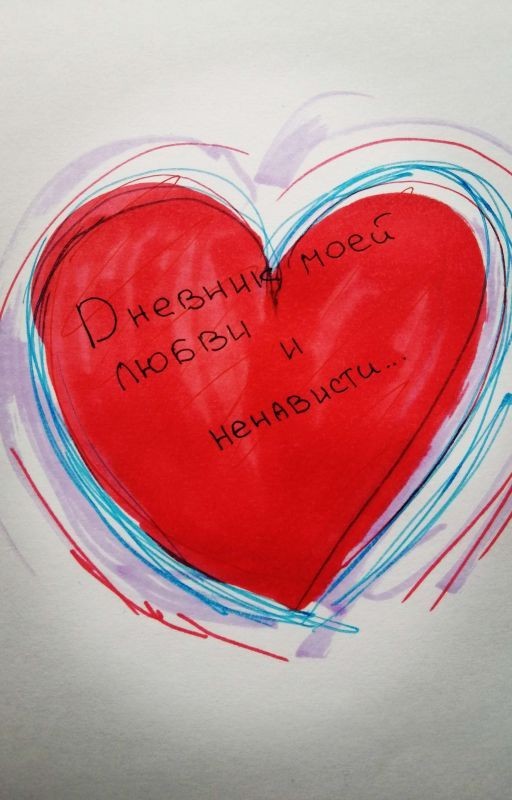 Dневник моей
любви и
ненависти...